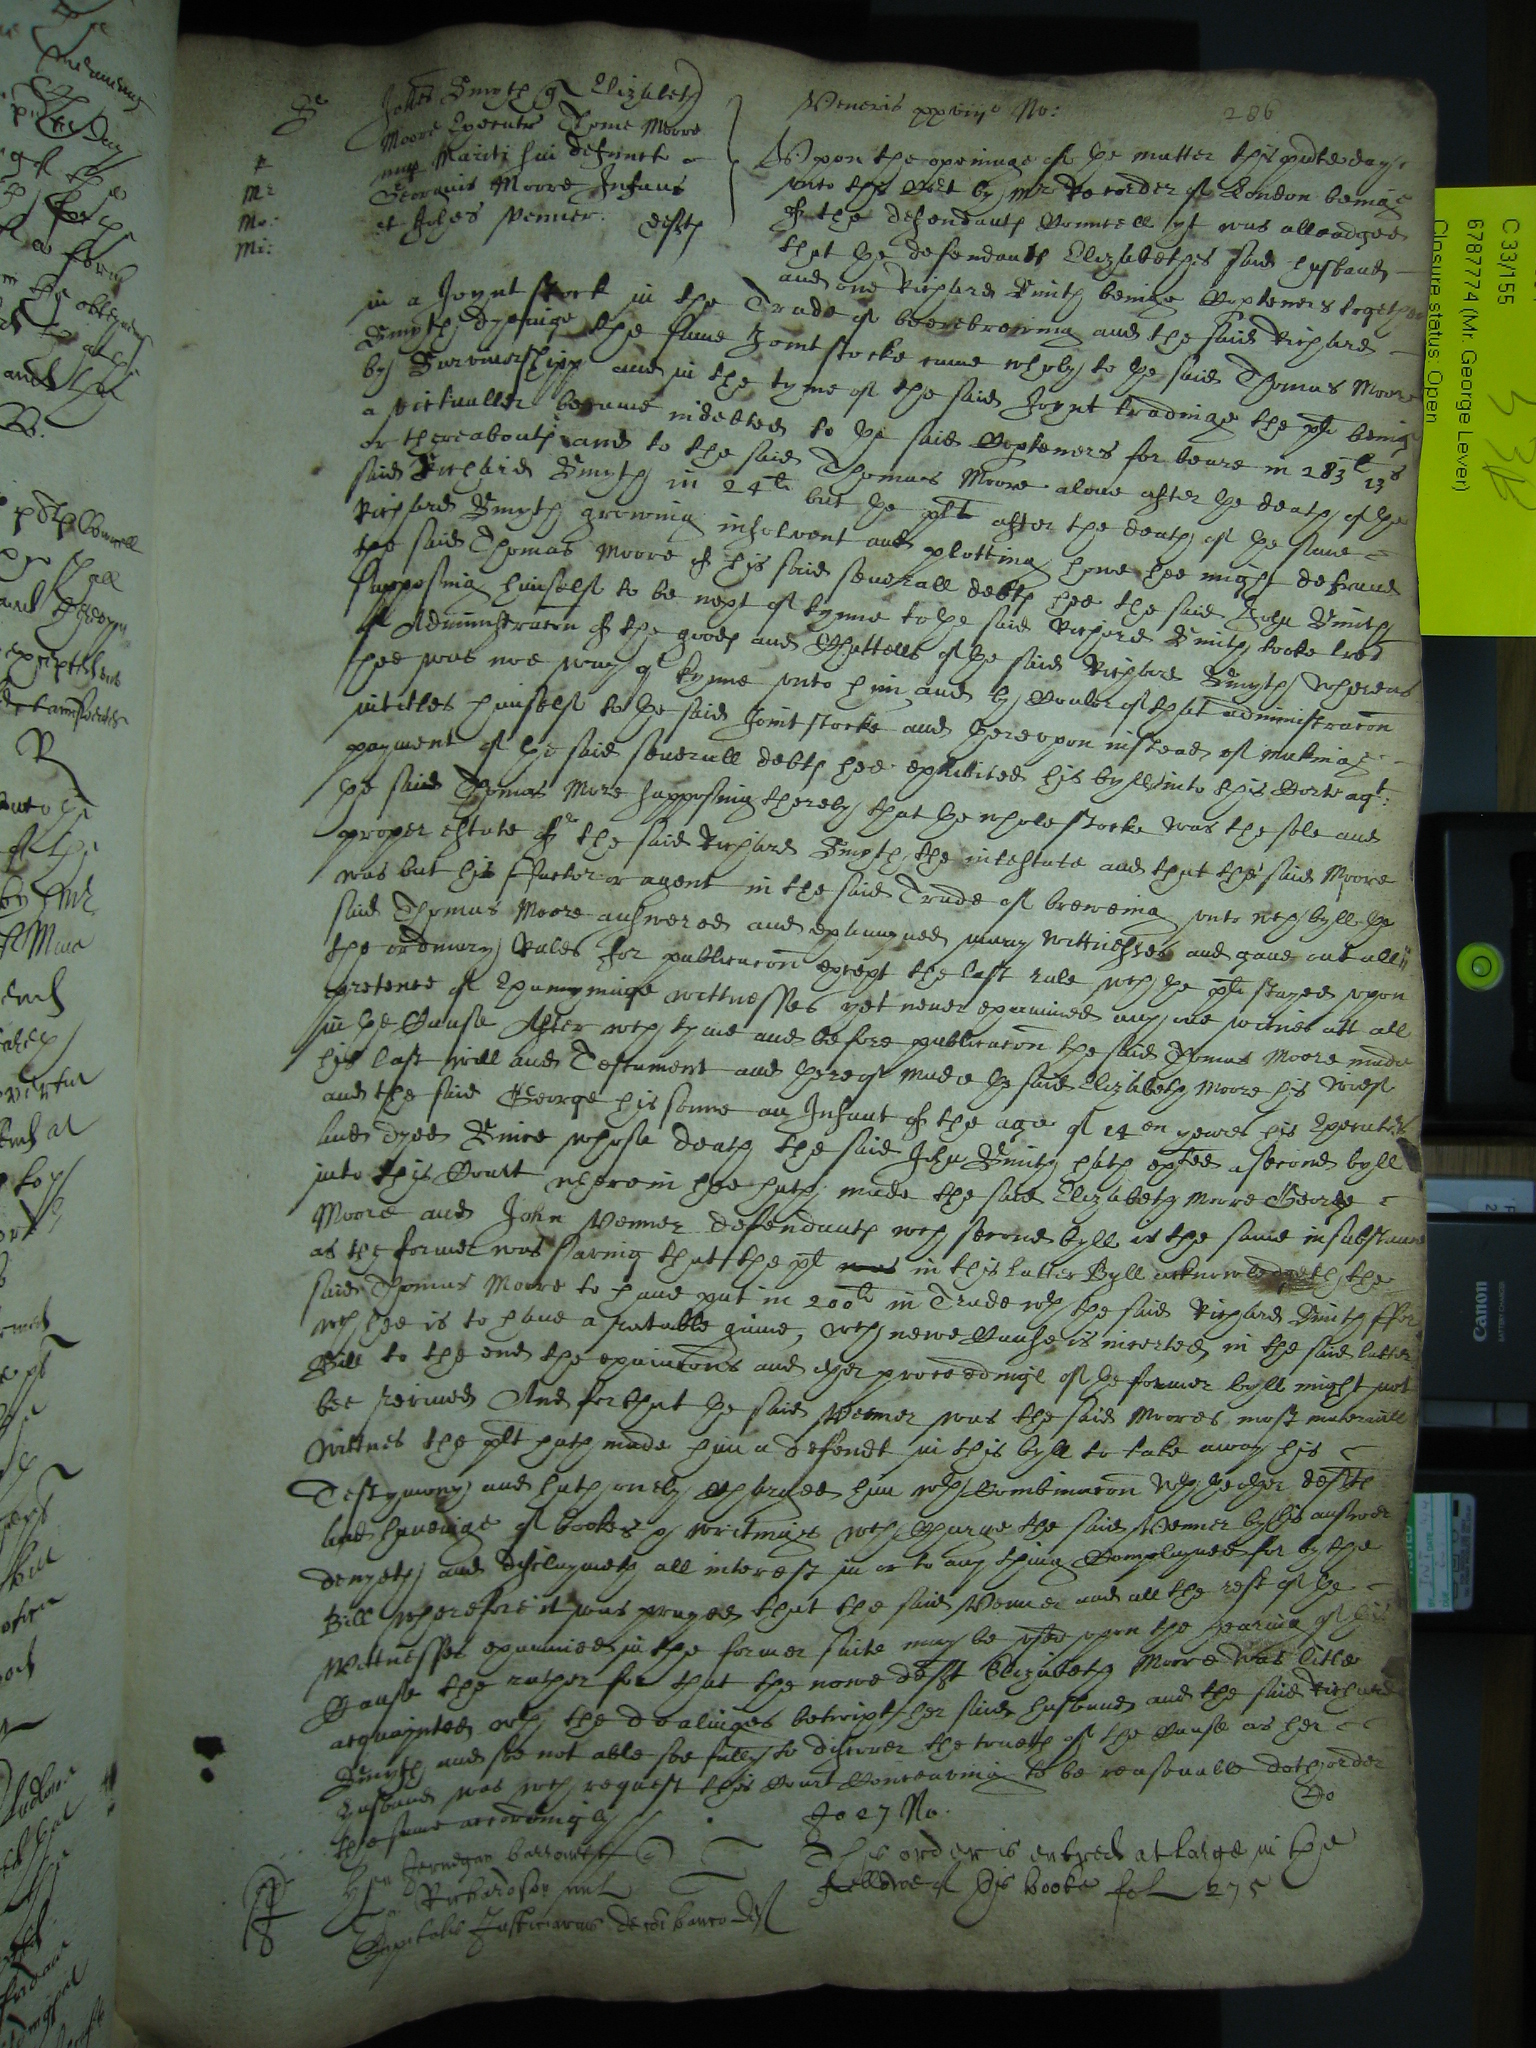 286
Johes Smyth q Elizabeth
Moore Executr Thome Moore
nup Mariti sui defunct
Georgius Moore Infans
et Johes Venner. defts
Mr
Mo:
Mi:
Veneris xxviijo No:
Upon the openinge of the matter this pnte daye
unto this Court by mr Recorder of London beinge
of the defendants Councell yt was alleadged
that the defendant Elizabethes said husband
and one Richard Smith beinge Copteners together
in a Joynt stock in the Trade of beerebrewing and the said Richard
Smyth dyeinge the same Joint stocke came wholy to the said Thomas Moore
by Survivorshipp and in the tyme of the said Joynt tradinge the plt being
a victualler became indebted to the said Copteners for beare in 283li 13s
or thereabouts and to the said Thomas Moore alone after the death of the
said Richard Smyth in 24li but the plt after the death of the same
Richard Smyth growing insolvent and plotting howe hee might defraud
the said Thomas Moore of his said severall debts hee the said John Smith
supposing himself to be next of kynne to the said Richard Smith tooke lres
of Administracon of the goods and Chattells of the said Richard Smyth whereas
hee was noe way of kynne unto him and by Coulor of that administracon
intitles himself to the said Joint stocke and thereupon instead of making
payment of the said severall debts hee exhibited his byll into this Corte agt:
the said Thomas More supposing thereby that the whole stocke was the sole and
proper estate of the said Richard Smyth the intestate and that the said Moore
was but his Factor or agent in the said Trade of breweing unto wch byll the
said Thomas Moore answered and examyned many wittnesses and gave out all
the ordinary Rules for publicacon except the last rule wch the plt stayed upon
pretence of Examyninge wittnesses yet never examined any one witnes att all
in the Cause After wch tyme and before publicacon the said Thomas Moore made
his last will and Testament and thereof made the said Elizabeth Moore his wief
and the said George his sonne an Infant of the age of 14en yeares his Executrs
and dyed Since whose death the said John Smith hath exhted a second byll
into this Court wherein hee hath made the said Elizabeth Moore George
Moore and John Venner defendants wch second byll is the same in substance
as the former was saving that the plt was in this latter Byll acknowledgeth the
said Thomas Moore to have put in 200li in Trade wth the said Richard Smith ffor
wch hee is to have a ratable gaine, wch newe Clause is inserted in the said latter
Bill to the end the examacons and other proceedings of the former byll might not
bee revived And for that the said Venner was the said Moores most materiall
wittnes the plt hath made him a defendt in this byll to take away his
Testymony and hath onely Charged him wth Combinacon wth the other defts
and haveinge of bookes & writings wch Charge the said Venner by his answere
denyeth and disclaymeth all interest in or to any thing Complayned for by the
Bill wherefore it was prayed that the said Venner and all the rest of the
Wittnesses examined in the former suite may be used upon the hearing of this
Cause the rather for that the nowe deft Elizabeth Moore was litle
acquainted wth the dealinges betwixt her said husband and the said Richard
Smyth and soe not able soe fully to discover the trueth of the Cause as her
husband was wch request this Court Conceaving to be reasonable doth order
the same accordingly
Hen Jernegan baronett
Richardson mil
Capitalis Justiciarius de coi banco deft
Jo 27 No.
Do
This order is entred at large in the
fellowe of this booke fol 275
C 33/155
6787774 (Mr. George Lever)
Closure status: Open
Canon